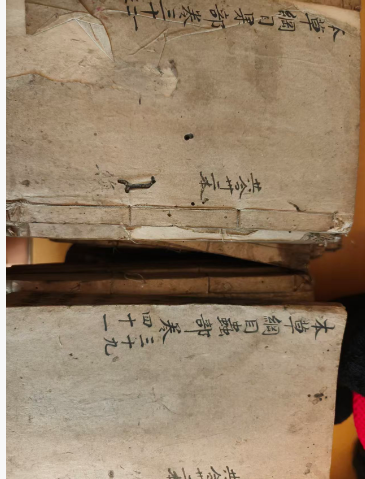 本草綱目果部卷三十
共合廿二本
本草綱目蟲部卷三十九
四十一
共合廿二本